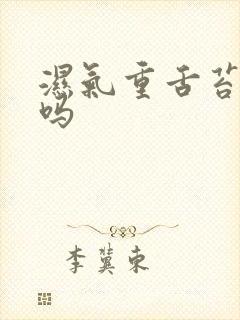 濕氣重舌苔
吗
李冀东